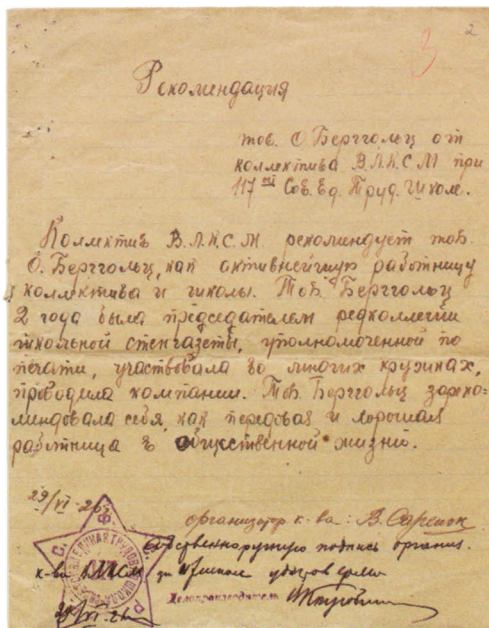 3
2
Рекомендация
тов. О Берггольц от
коллектива В.Л.К.С.М при
117ой Сов. Ед. Труд. Школе.
Коллектив В.Л.К.С.М. рекомендует тов.
О. Берггольц, как активнейшую работницу
коллектива и школы. Тов. Берггольц
2 года была председателем редколлегии
школьной стенгазеты, уполномоченной по
печати, участвовала во многих кружках,
проводила компании. Тов. Берггольц зареко=
мендовала себя, как передовая и хорошая
работница в общественной жизни.
29/VI-26
организатор к-ва: В.
Собственноручную подпись организ.
к-ва ВЛКСМ
Делопроизводитель
29/VI.26